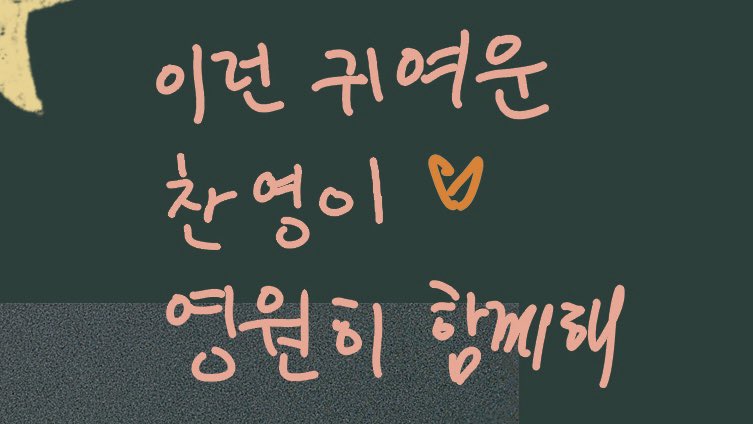 이런 귀여운
찬영이
영원히 함께해